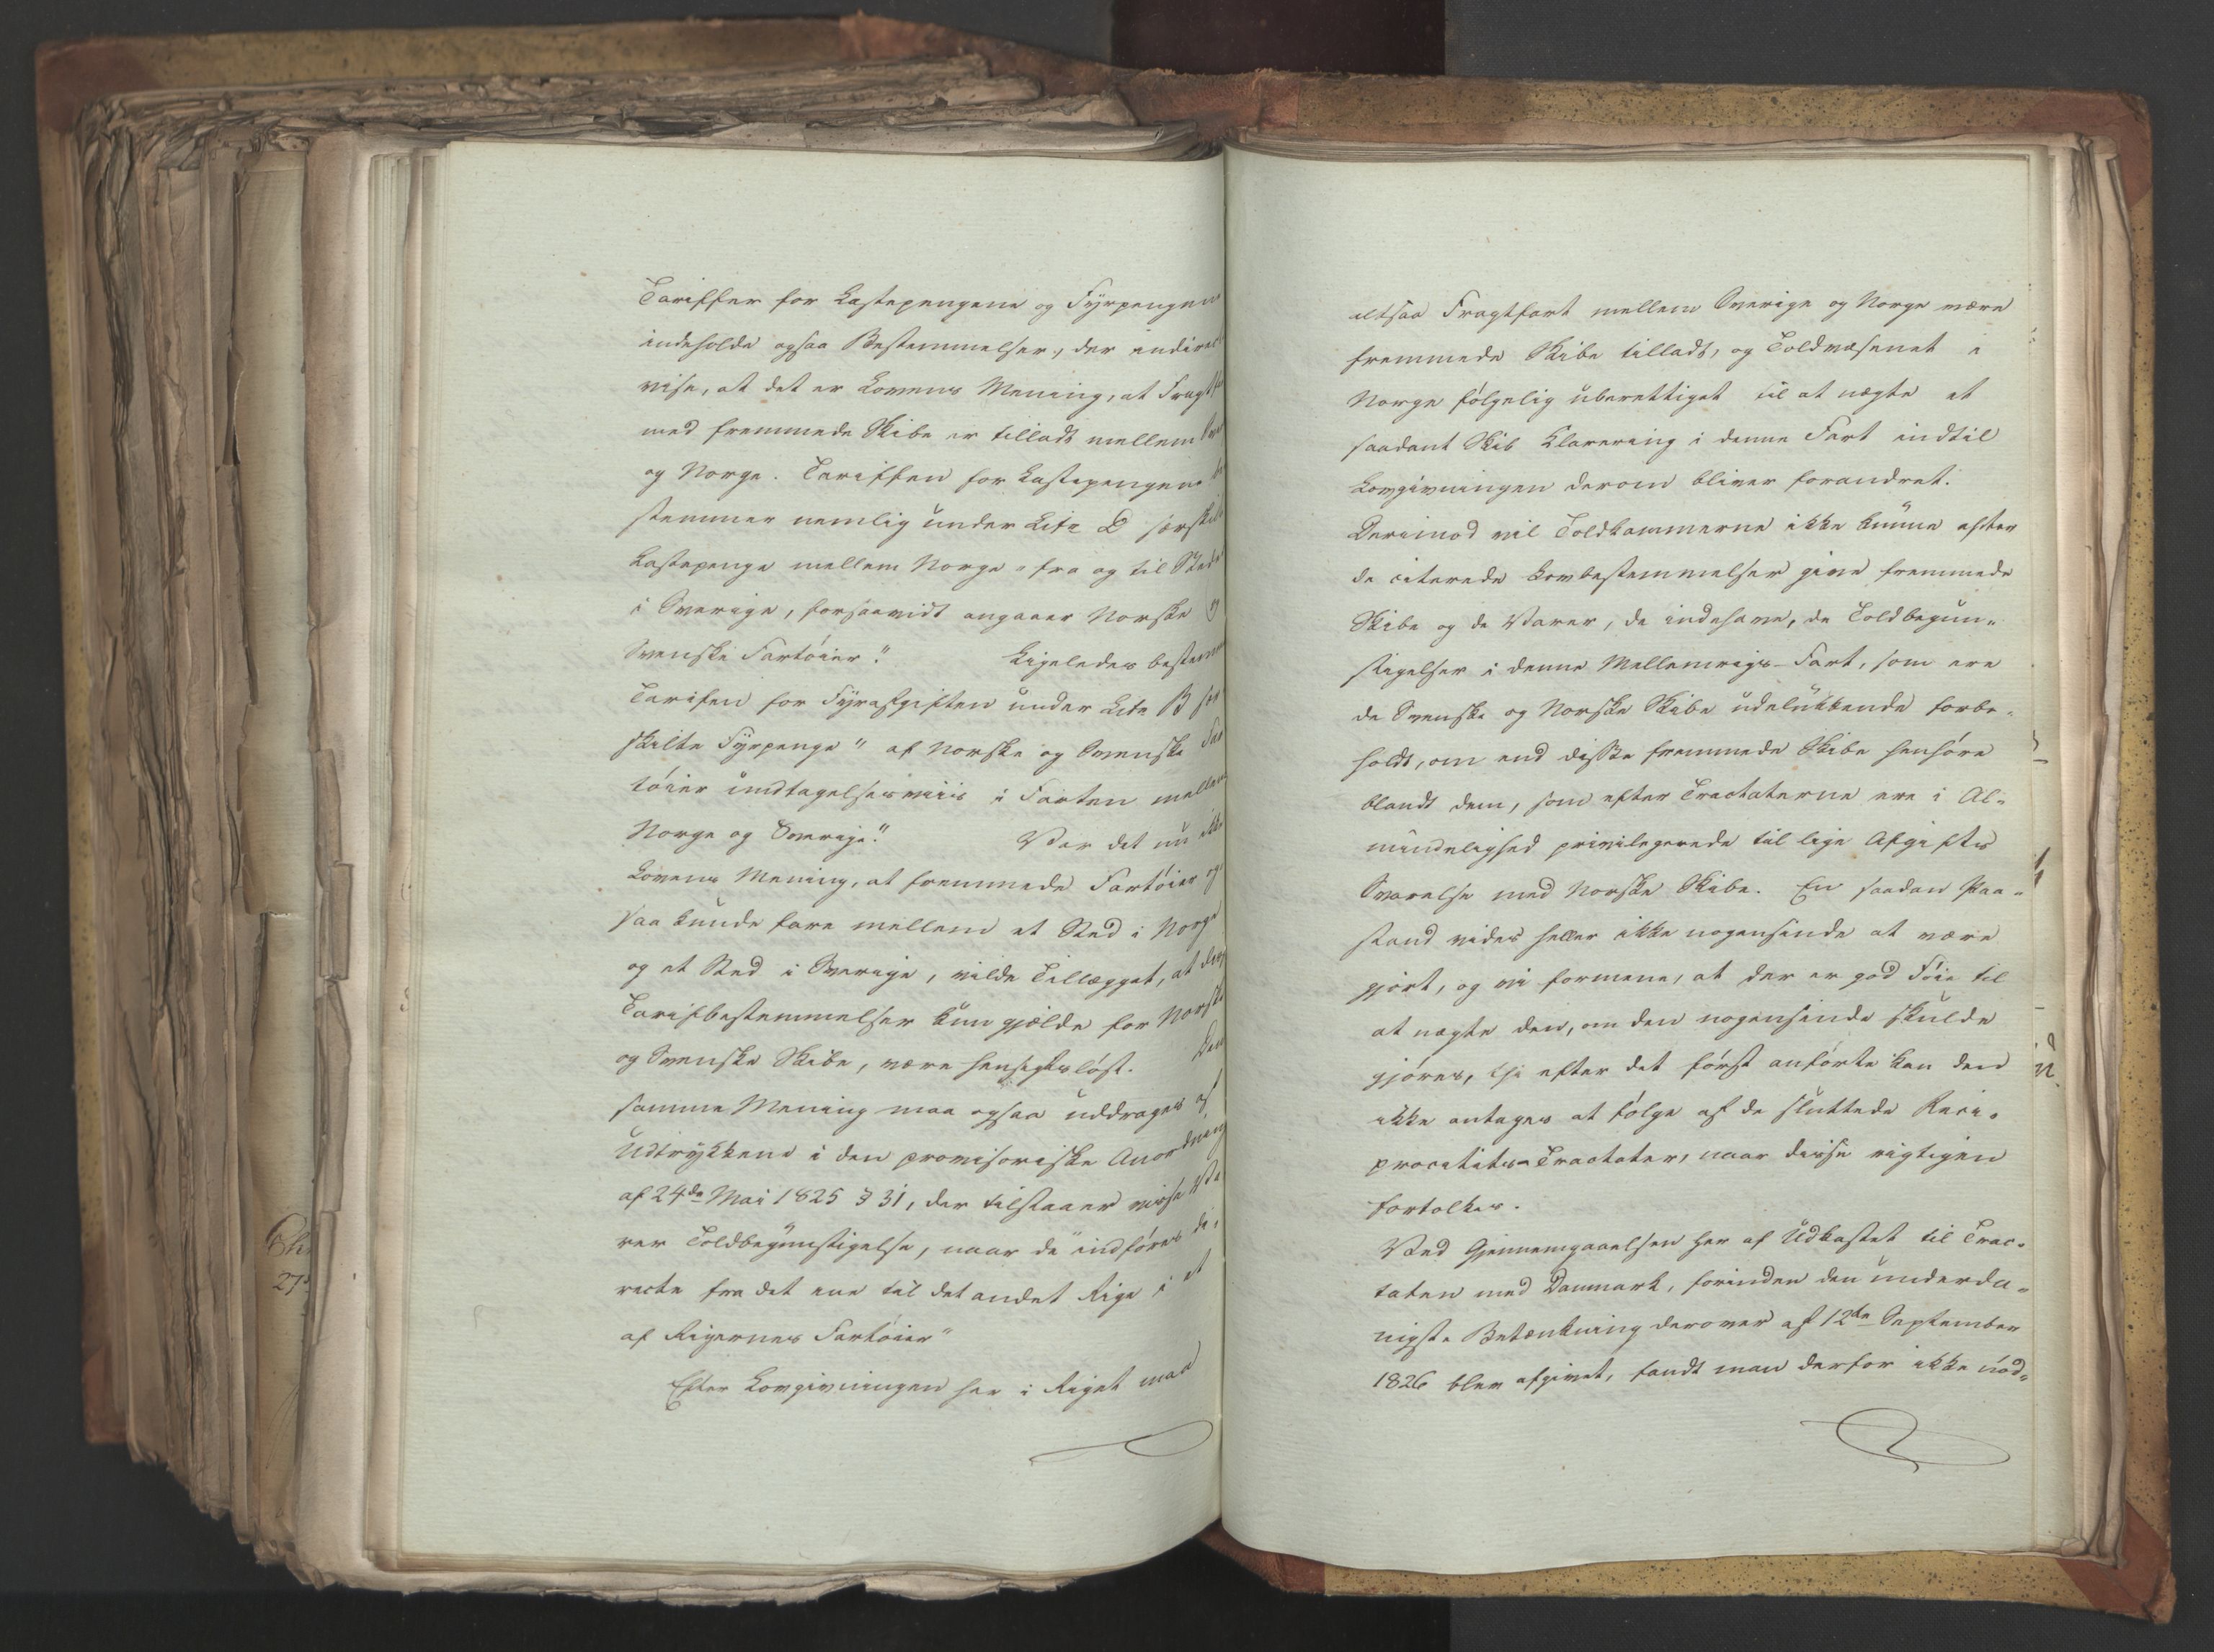 Tariffer for Lastepengene og Fyrpengene
indeholde ogsaa Bestemmelser, der indirect
vise, at det er Lovens Mening, at Fragtf
med fremmede Skibe er tilladt mellem Sver
og Norge. Tariffen for Lastepengene be
stemmer nemlig under Litr D særskilte
Lastepenge mellem Norge "fra og til Steder
i Sverige, forsaavidt angaaer Norske og
Svenske Fartöier." Ligeledes bestemmer
Tarifen for Fyrafgiften under Litr B sær
skilte Fyrpenge "af Norske og Svenske Far
töier undtagelsesviis i Farten mellem
Norge og Sverige." Var det nu ikke
Lovens Mening, at fremmede Fartöier og
saa kunde fare mellem et Sted i Norge
og et Sted i Sverige, vilde Tillægget, at disse
Tarifbestemmelser kun gjælde for Norske
og Svenske Skibe, være hensigtslöst. Den
samme Mening maa ogsaa uddrages af
Udtrykkene i den provisoriske Anordning
af 24de Mai 1825 § 31, der tilstaaer visse Va
rer Toldbegunstigelse, naar de "indföres di-
recte fra det ene til det andet Rige i et
af Rigernes Fartöier"
Efter Lovgivningen her i Riget maa
altsaa Fragtfart mellem Sverige og Norge være
fremmede Skibe tilladt, og Toldvæsenet i
Norge fölgelig uberettiget til at nægte et
saadant Skib Klarering i denne Fart indtil
Lovgivningen derom bliver forandret.
Derimod vil Toldkamrene ikke kunne efter
de citerede Lovbestemmelser give fremmede
Skibe og de Varer, de indehave, de Toldbegun-
stigelser i denne Mellemrigs-Fart, som ere
de Svenske og Norske Skibe udelukkende forbe-
holdt, om end disse fremmede Skibe henhöre
blandt dem, som efter Tractaterne ere i Al-
mindelighed privilegerede til lige Afgifts
Svarelse med Norske Skibe. En saadan Paa-
stand vides heller ikke nogensinde at være
gjort, og vi formene, at der er god Föie til
at nægte den, om den nogensinde skulde
gjöres, thi efter det först anförte kan den
ikke antages at fölge af de sluttede Reci-
procitets-Tractater, naar disse rigtigen
fortolkes.
Ved Gjennemgaaelsen her af Udkastet til Trac-
taten med Danmark, forinden den underda-
nigste Betænkning derover af 12te September
1826 blev afgivet, fandt man derfor ikke nöd-